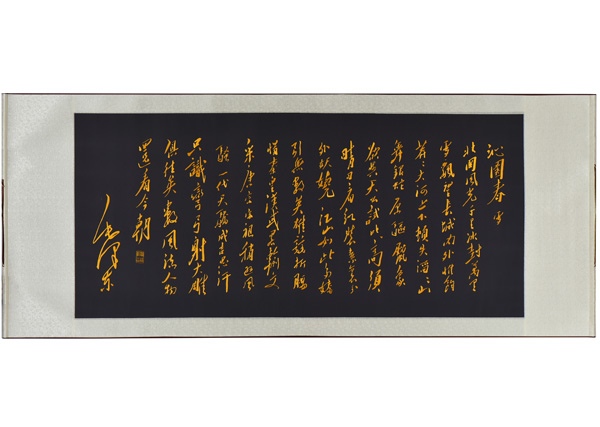 沁園春 雪
北國風光千里冰封萬里
雪飄望長城內外惟餘
莽莽大河上下頓失滔滔山
舞銀蛇原驅臘象
欲與天公試比高須
晴日看紅裝素裹分
外妖嬈江山如此多嬌
引無數英雄競折腰
惜秦皇漢武略輸文
采唐宗宋祖稍遜風
騷一代天驕成吉思汗
只識彎弓射大雕
俱往矣數風流人物
還看今朝
毛澤東